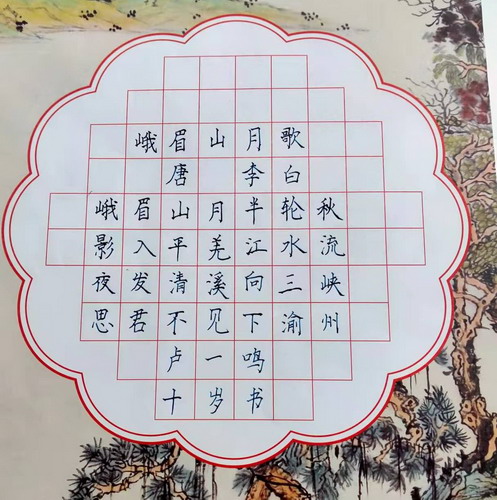 峨眉山月歌
唐 李白
峨眉山月半轮秋
影入平羌江水流
夜发清溪向三峡
思君不见下渝州
卢一鸣
十岁书